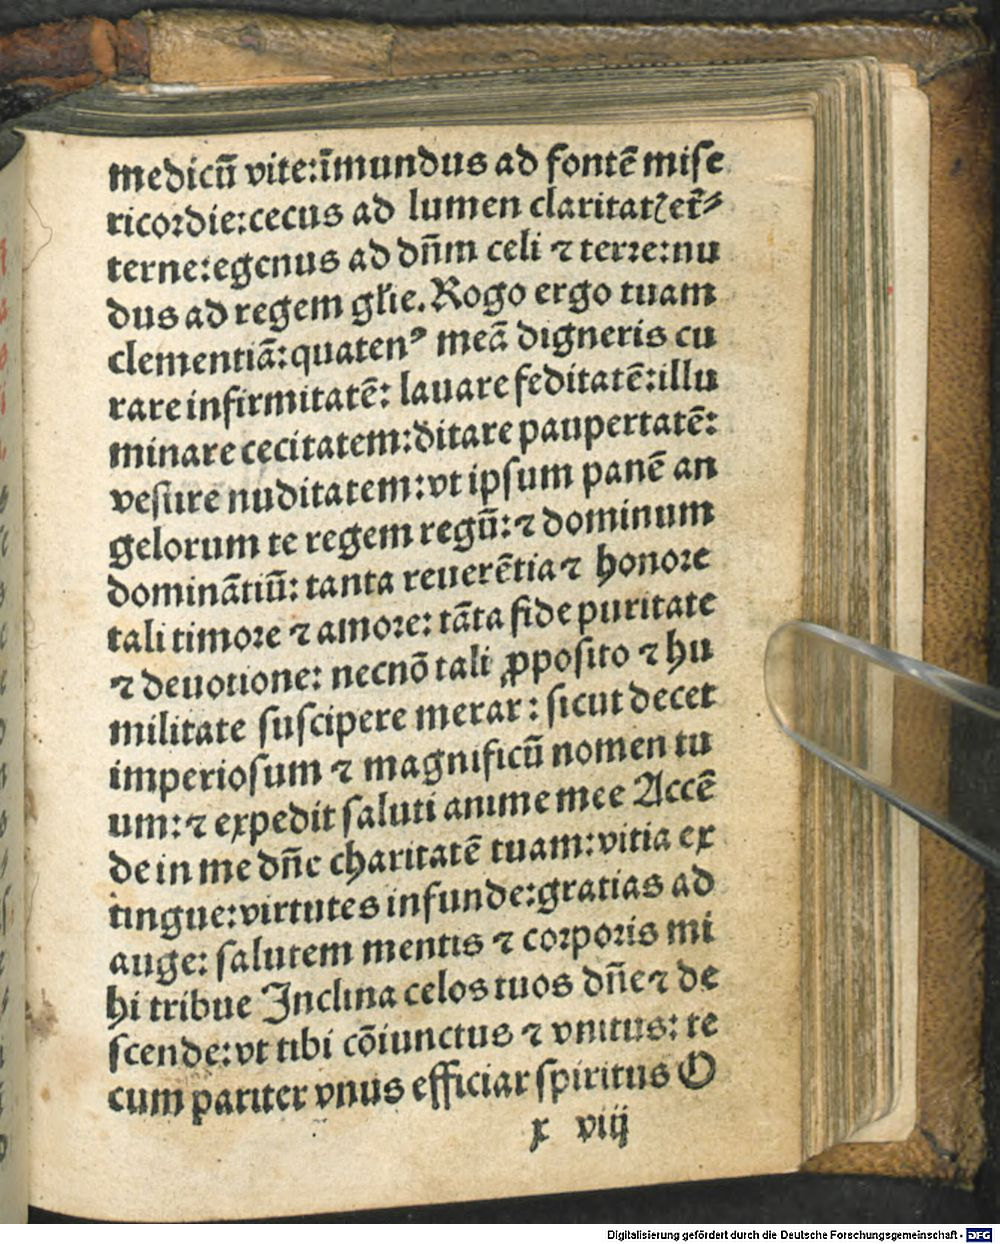 medicū vite:īmundus ad fontē mise
ricordie:cecus ad lumen claritatꝭ et̄⸗
terne:egenus ad dn̄m celi ⁊ terre:nu
dus ad regem gl̄ie. Rogo ergo tuam
clementiā:quatenꝰ meā digneris cu
rare infirmitatē: lauare feditatē:illu
minare cecitatem:ditare paupertatē:
vestire nuditatem:vt ipsum panē an
gelorum te regem regū:⁊ dominum
dominātiū: tanta reuerētia ⁊ honore
tali timore ⁊ amore: tāta fide puritate
⁊ deuotione: necnō tali ꝓposito ⁊ hu
militate suscipere merar: sicut decet
imperiosum ⁊ magnificū nomen tu
um:⁊ expedit saluti anime mee Accē
de in me dn̄e charitatē tuam:vitia ex
tingue:virtutes infunde:gratias ad
auge: salutem mentis ⁊ corporis mi
hi tribue Inclina celos tuos dn̄e ⁊ de
scende:vt tibi cōiunctus ⁊ vnitus: te
cum pariter vnus efficiar spiritus O
x viij
Digitalisierung gefördert durch die Deutsche Forschungsgemeinschaft - DFG